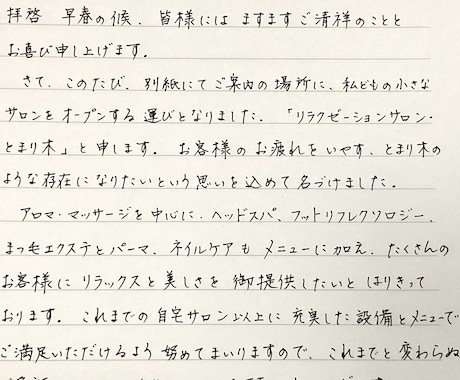 拝啓　早春の候、皆様には ますます ご清祥のことと
お喜び申し上げます。
さて、このたび、別紙にて ご案内の場所に、私どもの小さな
サロンを オープンする 運びとなりました。「リラクゼーションサロン・
とまり木」と申します。 お客様の お疲れを いやす、とまり木の
ような存在に なりたいという思いを 込めて 名づけました。
アロマ・マッサージを 中心に、ヘッドスパ、フットリフレクソロジー、
まつ毛エクステとパーマ、ネイルケアも メニューに加え、たくさんの
お客様に リラックスと 美しさを 御提供したいと はりきって
おります。 これまでの 自宅サロン以上に 充実した 設備とメニューで
ご満足いただけるよう 努めてまいりますので、これまでと 変わらぬ